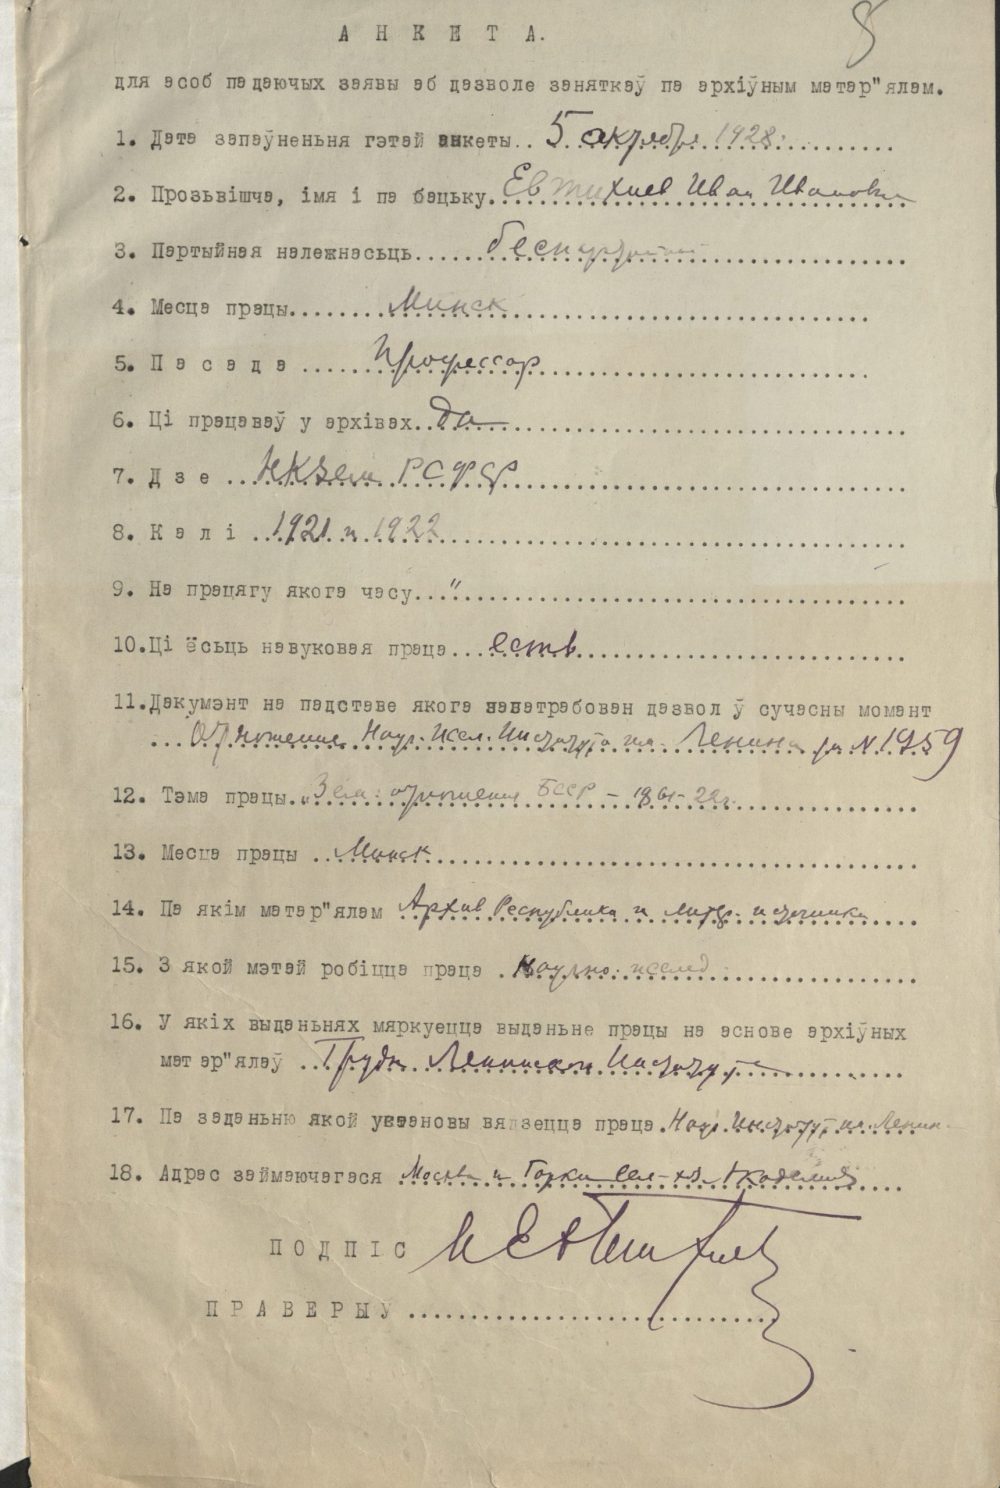 8
А Н К Е Т А.
для асоб падаючых заявы аб дазволе заняткаў па архіўным матар"ялам.
1. Дата запаўненьня гэтай анкеты.. 5 октября 1928
2. Прозьвішча, імя і па бацьку. Евтихиев Иван Иванович
3. Партыйная належнасьць...... беспартийный
4. Месца працы....... Минск
5. П а с а д а ..... Профессор
6. Ці працаваў у архівах.. да
7. Д з е .. НКЗем РСФСР
8. К а л і .. 1921 и 1922
9. На працягу якога часу..."
10. Ці ёсьць навуковая праца... есть
11. Дакумэнт на падставе якога запатрабован дазвол ў сучасны момант
... Отношение Науч. Иссл. Института им. Ленина за N 1959
12. Тэма працы.. „Зем. отношения БССР – 1861–22г.
13. Месца працы .. Минск
14. Па якім матар"ялам Архив Республики и литер. источники
15. З якой мэтай робіцца праца . Научно. исслед
16. У якіх выданьнях мяркуецца выданьне працы на аснове архіўных
матар"ялаў .. Труды Ленинского Института
17. Па заданьню якой установы вядзецца праца. Науч. Институт им. Ленин
18. Адрас займаючагася Москва и Горки Сел-хз. Академия
П О Д П І С И Евтихиев
П Р А В Е Р Ы Ў ..............................